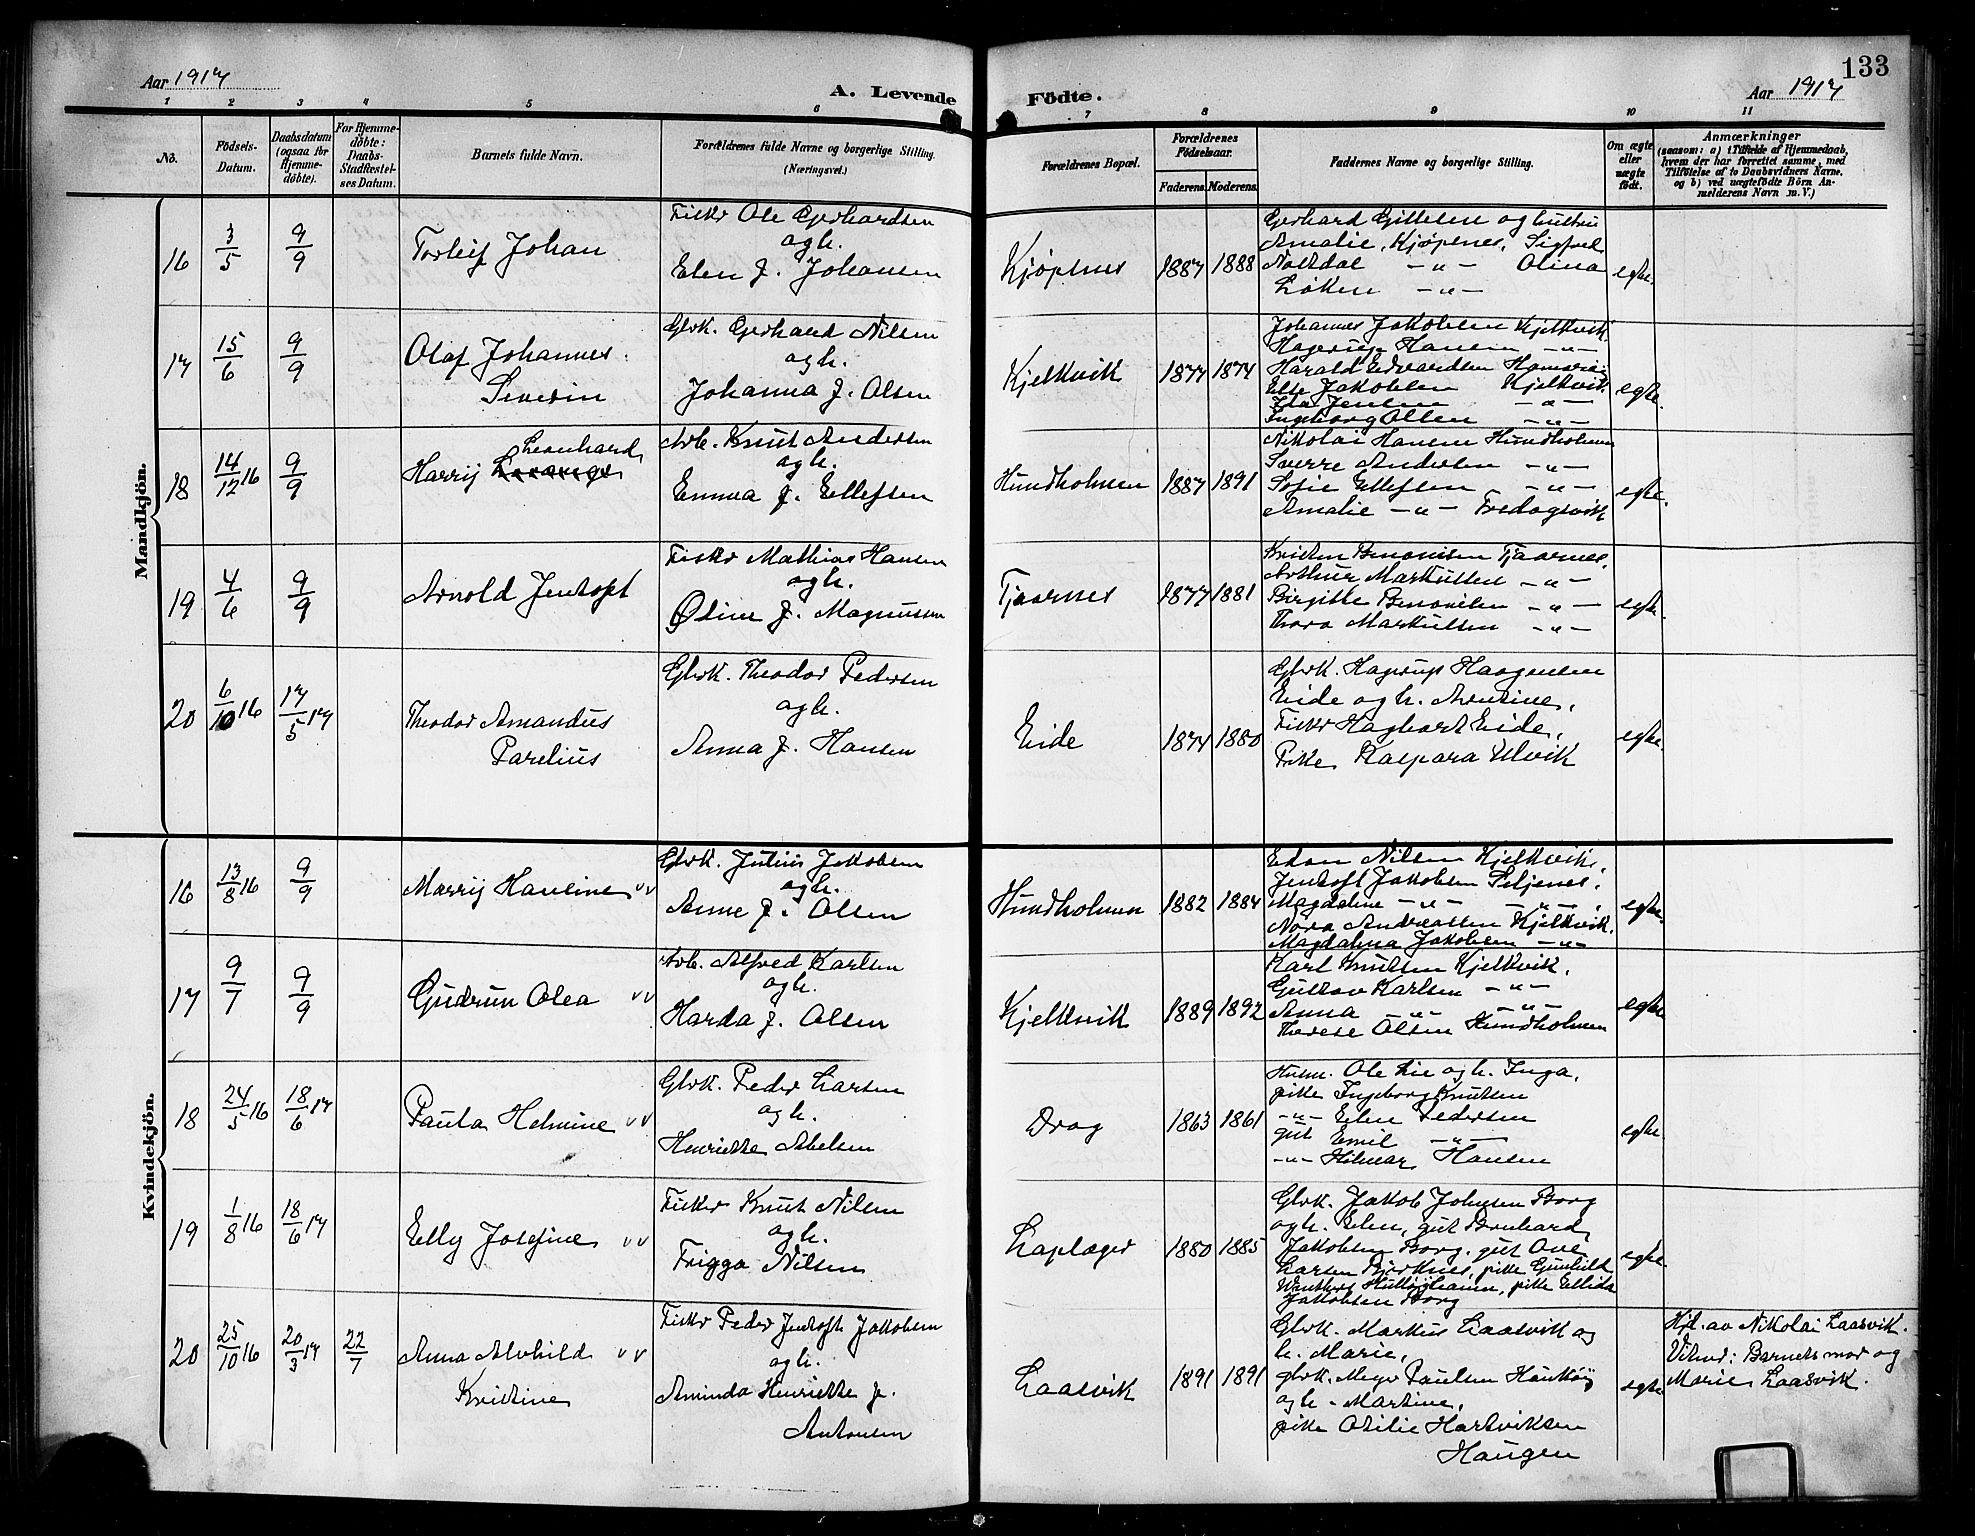 133
Aar 1917
A. Levende Födte.
Aar 1917
1 2 3 4 5 6 7 8 9 10 11
No.
Födsels-Datum.
Daabsdatum (ogsaa for Hjemme-döbte).
For Hjemme-döbte: Daabs-Stadfæstel-ses Datum.
Barnets fulde Navn.
Forældrenes fulde Navne og borgerlige Stilling. (Næringsvei.)
Forældrenes Bopæl.
Forældrenes Födselsaar.
Faderens. Moderens.
Faddernes Navne og borgerlige Stilling.
Om ægte eller uægte födt.
Anmærkninger
(saasom: a) i Tilfælde af Hjemmedaab, hvem der har forrettet samme, med Tilföielse af to Daabsvidners Navne, og b) ved uægtefödte Börn An-melderens Navn m. V.)
Mandkjön.
16 3/5 9/9 Torleif Johan
Fisker Ole Gerhardsen
og h.
Elen f. Johansen
Kjøpsnes 1887 1888
Gerhard Gittesen og hustru
Amalie, Kjøpsnes, Sigfred
Nolsdal -"- Olina
Løken -"-
egte.
17 15/6 9/9 Olaf Johannes
Severin
Gbrk. Gerhard Nilsen
og h.
Johanna f. Olsen
Kjelkvik 1877 1874
Johannes Jakobsen Kjelkvik
Hagerup Hansen -"-
Harald Edvardsen
Else Jakobsen Kjelkvik
Ida Jensen -"-
Ingeborg Olsen -"-
egte.
18 14/12 16 9/9 Harry Leonhard
Arb. Knut Andersen
og h.
Emma f. Ellefsen
Hundholmen 1887 1891
Nikolai Hansen Hundholmen
Sverre Andersen -"-
Sofie Ellefsen -"-
Amalie -"- Fredagsvik
egte.
19 4/6 9/9 Arnold Jentoft
Fisker Mathias Hansen
og h.
Ødine f. Magnussen
Tjaarnes 1877 1881
Kristen Benonisen Tjaarnes,
Arthur Markussen -"-
Birgitte Benonisen -"-
Thora Markussen -"-
egte.
20 6/10 16 17/5 17 Theodor Amandus
Parelius
Gbrk. Theodor Pedersen
og h.
Anna f. Hansen
Eide 1874 1880
Gbrk. Hagerup Haagensen
Eide og h. Arntine,
Fisker Hagbart Eide,
Pike Kaspara Ulvik
egte.
Kvindekjön.
16 13/8 16 9/9 Marry Hansine
Gbrk. Julius Jakobsen
og h.
Anne f. Olsen
Hundholmen 1882 1884
Edon Nilsen Kjelkvik,
Jentoft Jakobsen Siljenes,
Magdaline -"- -"-,
Nora Andreassen Kjelkvik,
Magdalena Jakobsen -"-
egte.
17 9/7 9/9 Gudrun Olea
Arb. Alfred Karlsen
og h.
Harda f. Olsen
Kjelkvik 1889 1892
Karl Knutsen Kjelkvik,
Gustav Karlsen -"-
Anna -"- -"-
Therese Olsen Hundholmen
egte
18 24/5 16 18/6 17 Paula Helmine
Gbrk. Peder Larsen
og h.
Henriette Abelsen
Drag 1863 1861
Husm. Ole Lie og h. Inga,
pike Ingeborg Knutsen
-"- Elen Pedersen
gut Emil -"-
-"- Hilmar Hansen
egte
19 1/8 16 18/6 17 Elly Josefine
Fisker Knut Nilsen
og h.
Frigga Nilsen
Laplæger 1880 1885
Gbrk. Jakob Johnsen Borg
og h. Elen, gut Bernhard
Jakobsen Borg. gut Ove
Larsen Bjørknes, pike Gunhild
pike Ellida
Jakobsen Borg
egte
20 25/10 16 20/3 17 22/7 Anna Alvhild
Kristine
Fisker Peder Jentoft Jakobsen
og h.
Aminda Henriette f.
Antonsen
Laasvik 1891 1891
Gbrk. Markus Laasvik og
h. Marie,
gbrk. Meyer Paulsen
og h. Martine,
pike Otilie Hartviksen
Haugen
egte
Hjd. av Nikolai Laasvik.
Vitner: Barnets mor og
Marie Laasvik.